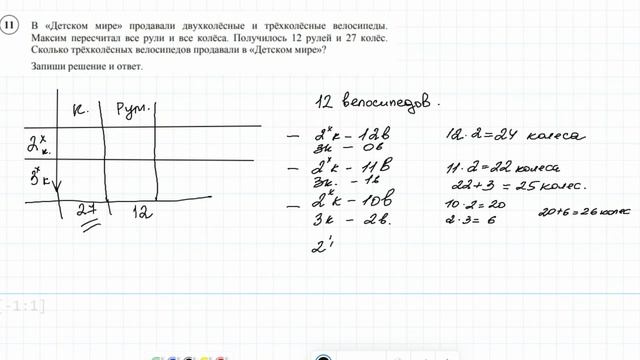 11
В «Детском мире» продавали двухколёсные и трёхколёсные велосипеды.
Максим пересчитал все рули и все колёса. Получилось 12 рулей и 27 колёс.
Сколько трёхколёсных велосипедов продавали в «Детском мире»?
Запиши решение и ответ.
к. рул.
2х к.
3х к
27 12
12 велосипедов.
— 2х к – 12в 12·2=24 колеса
3к – 0в
— 2х к – 11в 11·2=22 колеса
3к. – 1в 22+3=25 колес.
— 2х к – 10в 10·2=20
3к – 2в. 2·3=6 20+6=26 колес
2
[-1:1]